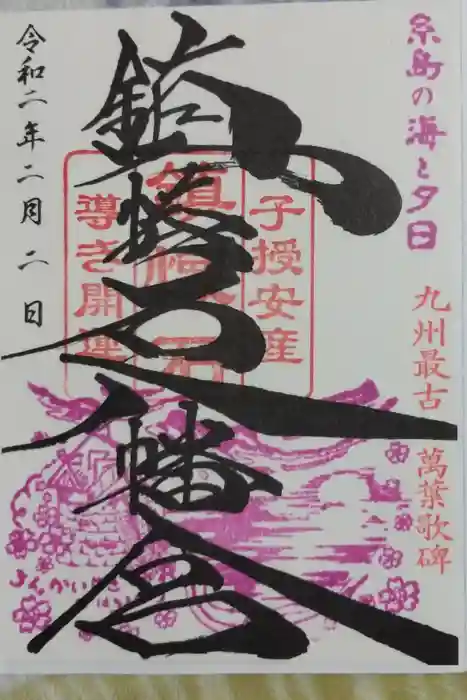 糸島の海と夕日
九州最古 萬葉歌碑
鎮懐石八幡宮
子授安産
鎮懐石
導き開運
令和二年二月二日